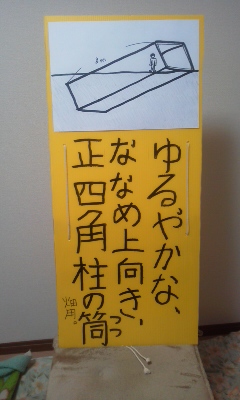 ゆるやかな、
ななめ上向き、
正四角柱の筒
つつ